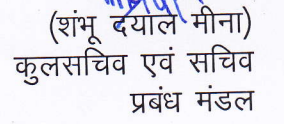 (शंभू दयाल मीना)
कुलसचिव एवं सचिव
प्रबंध मंडल